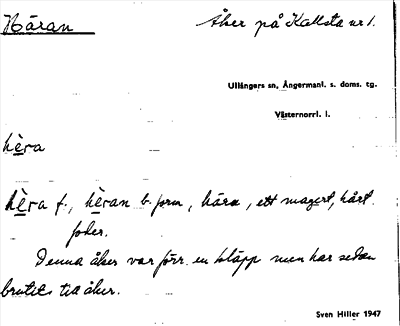 Häran
Åker på Kallsta nr 1.
Ullångers sn, Ångermanl. s. doms. tg.
Västernorrl. l.
hèra
hèra f., hèran b. form, hära, ett magert, hårt
foder.
Denna åker var förr en kläpp men har sedan
brutits till åker.
Sven Hiller 1947